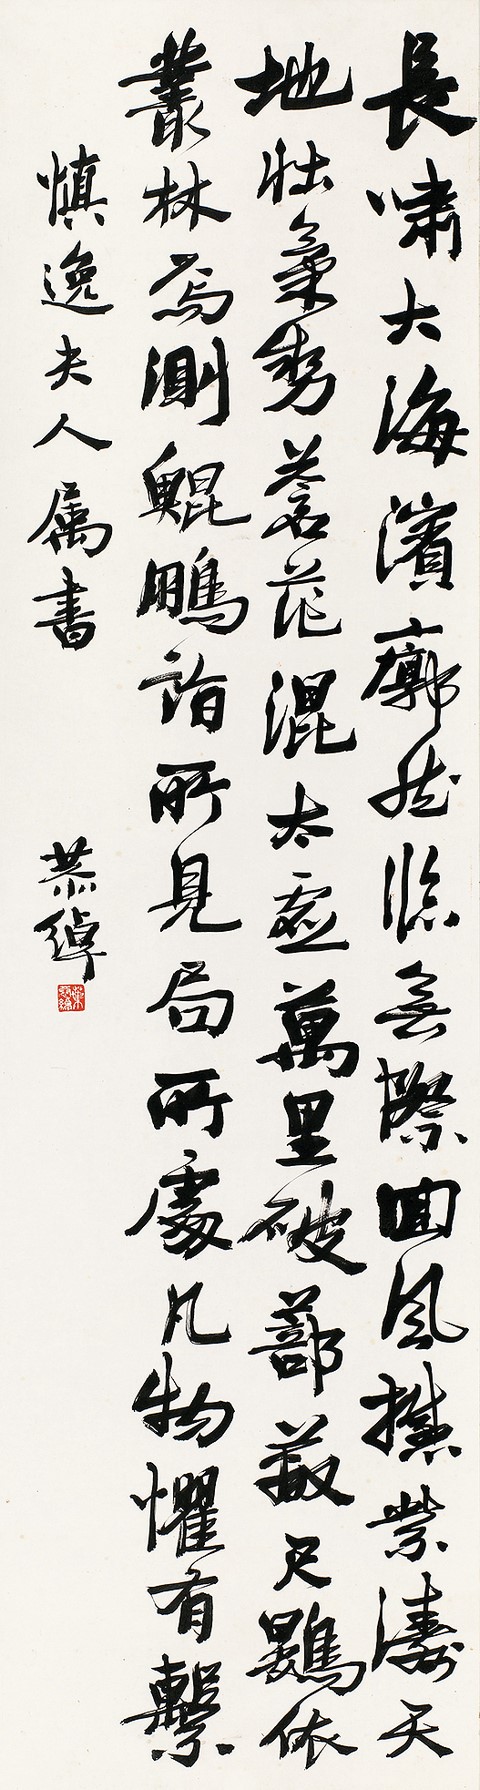 長嘯大海濱廓然臨無際回風撼紫濤天
地壯氣勢蒼茫混太虛萬里破蔀蔽尺鷃依
叢林焉測鯤鵬詣所見局所處凡物懼有繫
慎逸夫人属書 恭綽